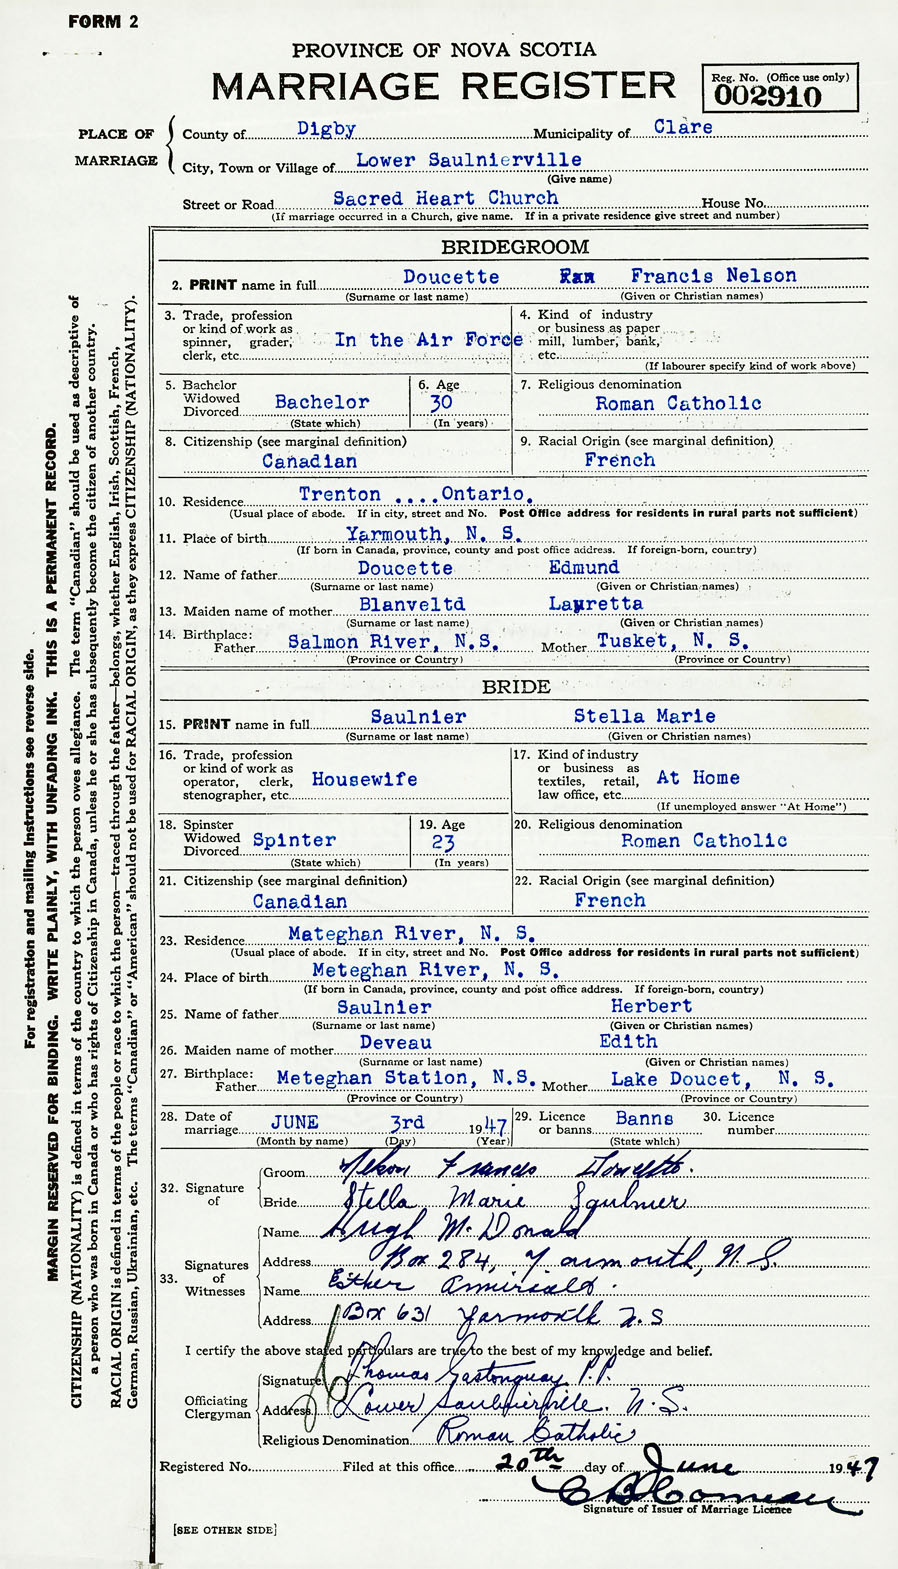 FORM 2
PROVINCE OF NOVA SCOTIA
MARRIAGE REGISTER
Reg. No. (Office use only)
002910
PLACE OF MARRIAGE
County of Digby Municipality of Clare
City, Town or Village of Lower Saulnierville
(Give name)
Street or Road Sacred Heart Church House No.
(If marriage occurred in a Church, give name. If in a private residence give street and number)
BRIDEGROOM
2. PRINT name in full Doucette Francis Nelson
(Surname or last name) (Given or Christian names)
3. Trade, profession
or kind of work as
spinner, grader, In the Air Force
clerk, etc.
4. Kind of industry
or business as paper
mill, lumber, bank,
etc.
(If labourer specify kind of work above)
5. Bachelor
Widowed Bachelor
Divorced
(State which)
6. Age
30
(In years)
7. Religious denomination
Roman Catholic
8. Citizenship (see marginal definition)
Canadian
9. Racial Origin (see marginal definition)
French
10. Residence Trenton ....Ontario.
(Usual place of abode. If in city, street and No. Post Office address for residents in rural parts not sufficient)
11. Place of birth Yarmouth, N. S.
(If born in Canada, province, county and post office address. If foreign-born, country)
12. Name of father Doucette Edmund
(Surname or last name) (Given or Christian names)
13. Maiden name of mother Blanveltd Lauretta
(Surname or last name) (Given or Christian names)
14. Birthplace:
Father Salmon River, N.S. Mother Tusket, N. S.
(Province or Country) (Province or Country)
BRIDE
15. PRINT name in full Saulnier Stella Marie
(Surname or last name) (Given or Christian names)
16. Trade, profession
or kind of work as
operator, clerk, Housewife
stenographer, etc.
17. Kind of industry
or business as
textiles, retail, At Home
law office, etc.
(If unemployed answer "At Home")
18. Spinster
Widowed Spinter
Divorced
(State which)
19. Age
23
(In years)
20. Religious denomination
Roman Catholic
21. Citizenship (see marginal definition)
Canadian
22. Racial Origin (see marginal definition)
French
23. Residence Mateghan River, N. S.
(Usual place of abode. If in city, street and No. Post Office address for residents in rural parts not sufficient)
24. Place of birth Meteghan River, N. S.
(If born in Canada, province, county and post office address. If foreign-born, country)
25. Name of father Saulnier Herbert
(Surname or last name) (Given or Christian names)
26. Maiden name of mother Deveau Edith
(Surname or last name) (Given or Christian names)
27. Birthplace:
Father Meteghan Station, N.S. Mother Lake Doucet, N. S.
(Province or Country) (Province or Country)
28. Date of
marriage JUNE 3rd 1947
(Month by name) (Day) (Year)
29. Licence
or banns Banns
(State which)
30. Licence
number
32. Signature of
Groom Nelson Francis Doucette.
Bride Stella Marie Saulnier
33. Signatures of Witnesses
Name Hugh McDonald
Address Box 284, Yarmouth, N.S.
Name Esther Amirault.
Address Box 631 Yarmouth N.S
I certify the above stated particulars are true to the best of my knowledge and belief.
Officiating Clergyman
Signature Thomas Gastonguay P.P.
Address Lower Saulnierville. N.S.
Religious Denomination Roman Catholic
Registered No. Filed at this office 20th day of June 1947
Comeau
Signature of Issuer of Marriage Licence
[SEE OTHER SIDE]
For registration and mailing instructions see reverse side.
MARGIN RESERVED FOR BINDING. WRITE PLAINLY, WITH UNFADING INK. THIS IS A PERMANENT RECORD.
CITIZENSHIP (NATIONALITY) is defined in terms of the country to which the person owes allegiance. The term "Canadian" should be used as descriptive of
a person who was born in Canada or who has rights of Citizenship in Canada, unless he or she has subsequently become the citizen of another country.
RACIAL ORIGIN is defined in terms of the people or race to which the person—traced through the father—belongs, whether English, Irish, Scottish, French,
German, Russian, Ukrainian, etc. The terms "Canadian" or "American" should not be used for RACIAL ORIGIN, as they express CITIZENSHIP (NATIONALITY).